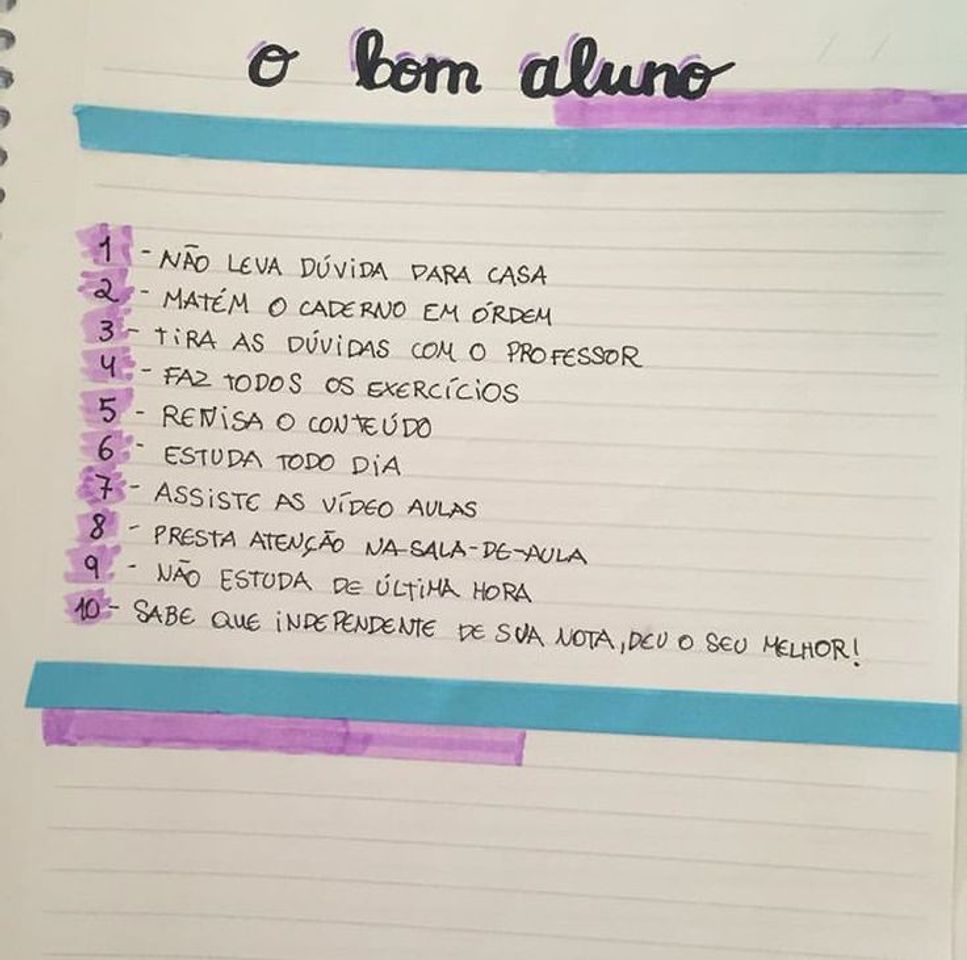 o bom aluno
1 - NÃO LEVA DÚVIDA PARA CASA
2 - MATÉM O CADERNO EM ÓRDEM
3 - TIRA AS DÚVIDAS COM O PROFESSOR
4 - FAZ TODOS OS EXERCÍCIOS
5 - REVISA O CONTEÚDO
6 - ESTUDA TODO DIA
7 - ASSISTE AS VÍDEO AULAS
8 - PRESTA ATENÇÃO NA-SALA-DE-AULA
9 - NÃO ESTUDA DE ÚLTIMA HORA
10 - SABE QUE INDEPENDENTE DE SUA NOTA, DEU O SEU MELHOR!